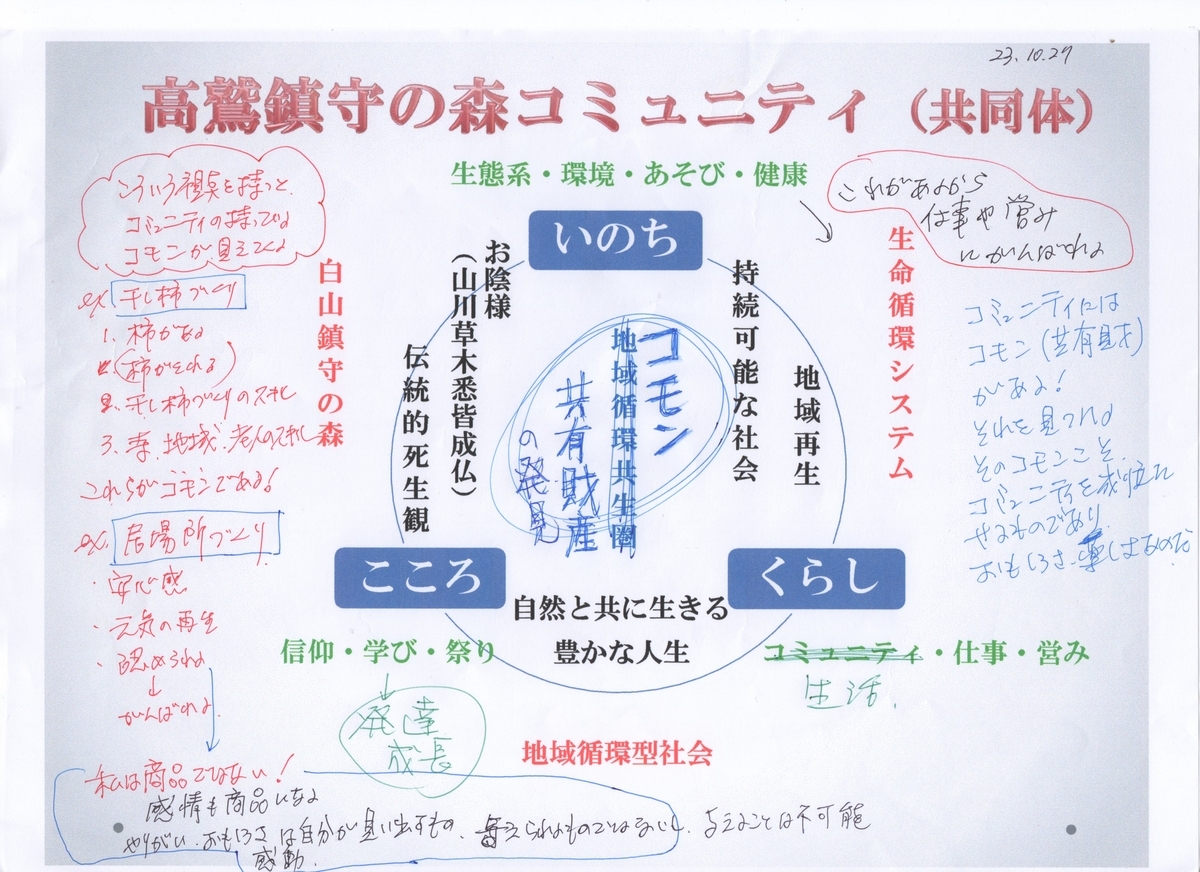 23.10.29
高鷲鎮守の森コミュニティ（共同体）
生態系・環境・あそび・健康
こういう視点を持つと、
コミュニティの持っている
コモンが見えてくる
これがあるから
仕事や営み
にがんばれる
いのち
お陰様
（山川草木悉皆成仏）
伝統的死生観
持続可能な社会
地域再生
白山鎮守の森
生命循環システム
コモン
地域循環共生圏
共有財産
の発見
ex 干し柿づくり
1. 柿がある
柿がとれる
干し柿づくりのスキル
3. 地域、老人のスキル
これらがコモンである!
ex. 居場所づくり
・安心感
・元気の再生
・認められる
↓
がんばれる
コミュニティには
コモン（共有財）
がある!
それを見つける
そのコモンこそ、
コミュニティを成り立た
せるものであり
おもしろさ、楽しさなのだ
こころ
くらし
自然と共に生きる
豊かな人生
信仰・学び・祭り
コミュニティ・仕事・営み
生活
発達
成長
地域循環型社会
私は商品ではない!
感情も商品になる
やりがい、おもしろさは自分が見い出すもの、与えられるものではないし、与えることは不可能
感動